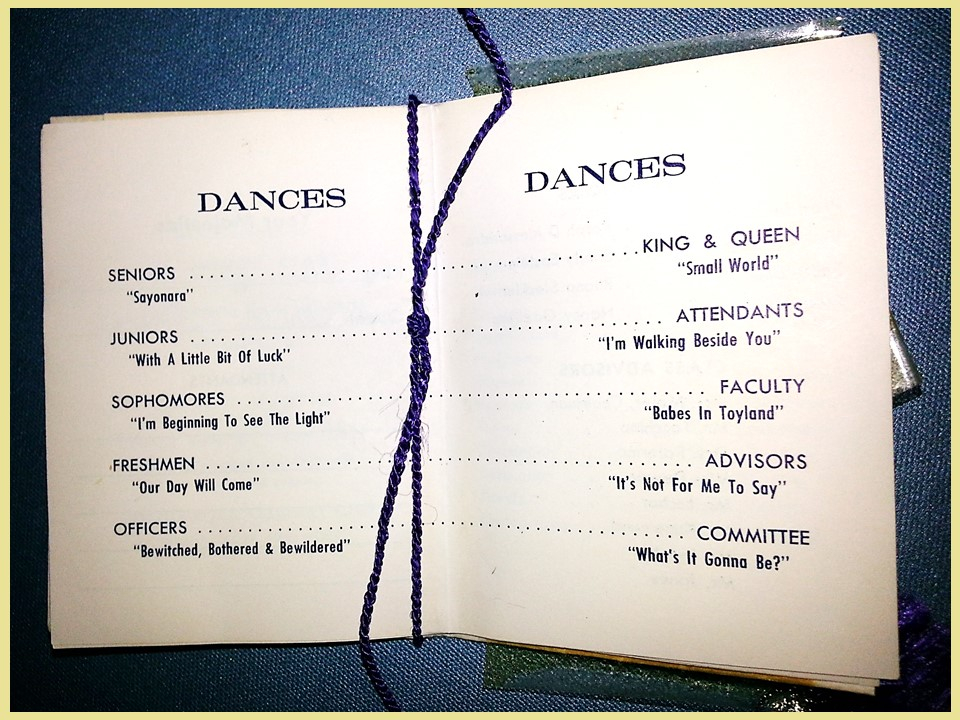 DANCES
SENIORS ....................
"Sayonara"
JUNIORS ....................
"With A Little Bit Of Luck"
SOPHOMORES ....................
"I'm Beginning To See The Light"
FRESHMEN ....................
"Our Day Will Come"
OFFICERS ....................
"Bewitched, Bothered & Bewildered"
DANCES
....................KING & QUEEN
"Small World"
.................... ATTENDANTS
"I'm Walking Beside You"
.................... FACULTY
"Babes In Toyland"
.................... ADVISORS
"It's Not For Me To Say"
.................... COMMITTEE
"What's It Gonna Be?"